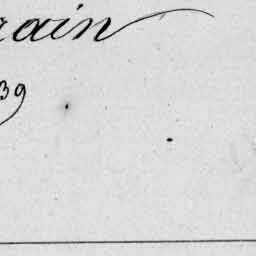 rain
39